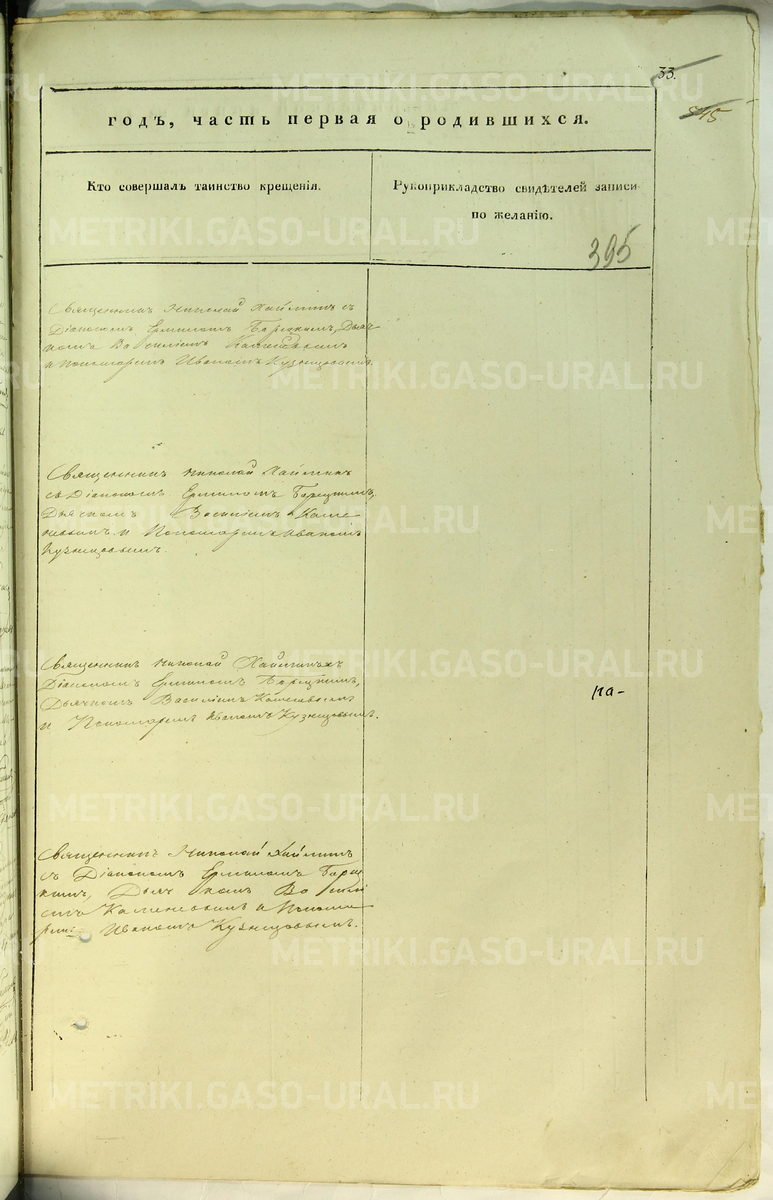 33.
515
годъ, часть первая о родившихся.
Кто совершалъ таинство крещенія.
Рукоприкладство свидѣтелей записи
по желанію.
395
Священникъ Николай Хаймин съ
Діакономъ Ермиломъ Борецкимъ, Дьяч
комъ Василіемъ Каменевымъ
и Пономаремъ Иваномъ Кузнецовымъ.
Священникъ Николай Хаймин
съ Діакономъ Ермиломъ Борецкимъ,
Дьячкомъ Василіемъ Каме
невымъ и Пономаремъ Иваномъ
Кузнецовымъ.
Священникъ Николай Хаймин съ
Діакономъ Ермиломъ Борецкимъ,
Дьячкомъ Василіемъ Каменевымъ
и Пономаремъ Иваномъ Кузнецовымъ.
ра-
Священникъ Николай Хаймин
съ Діакономъ Ермиломъ Борец
кимъ, Дьячкомъ Васил
емъ Каменевымъ и Понома
рем Иваномъ Кузнецовымъ.
METRIKI.GASO-URAL.RU